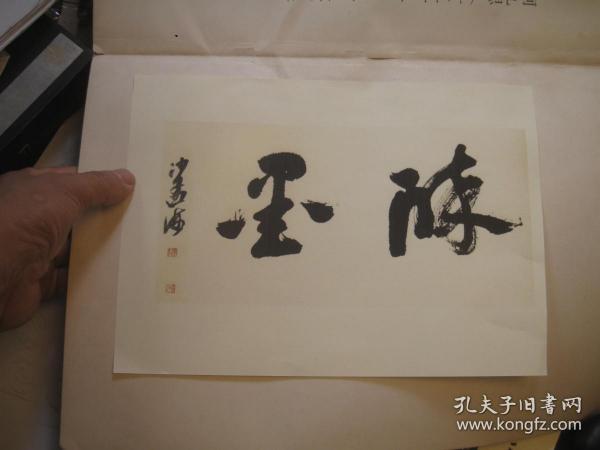 陈墨
沙孟海
孔夫子旧書网
www.kongfz.com